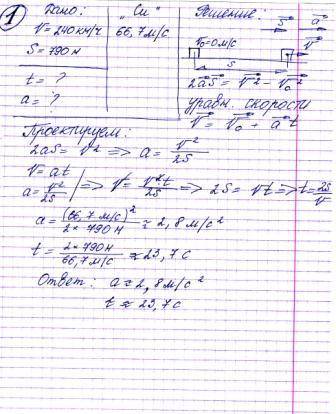 1
Дано: "Си" Решение:
V = 240 км/ч 66,7 м/с
S = 790 м
V₀ = 0 м/с S a V
S
t = ?
a = ?
2aS = V² - V₀²
уравн. скорости
V = V₀ + a t
Проектируем:
2aS = V² => a = V²/2S
V = at
a = V²/2S | => V = V²t/2S => 2S = Vt => t = 2S/V
a = (66,7 м/с)²/2 × 790 м ≈ 2,8 м/с²
t = 2 × 790 м/66,7 м/с ≈ 23,7 с
Ответ: a ≈ 2,8 м/с²
t ≈ 23,7 с